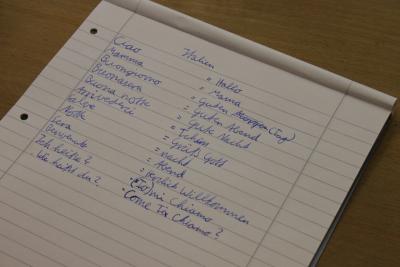 Italien
Ciao = Hallo
Mamma = Mama
Buongiorno = Guten Morgen (Tag)
Buonasera = Guten Abend
Buona notte = Gute Nacht
Arrivederci =
Salve = Grüß Gott
Notte = Nacht
Sera = Abend
= Herzlich Willkommen
Ich heiße? = (Io) mi Chiamo
Wie heißt du? = Come Chiamo?